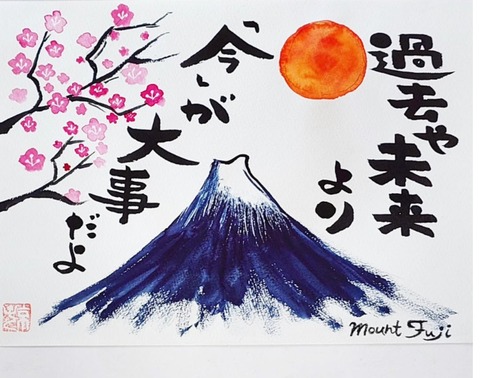 過去や
未来
より
「今」が
大事
だよ
Mount Fuji